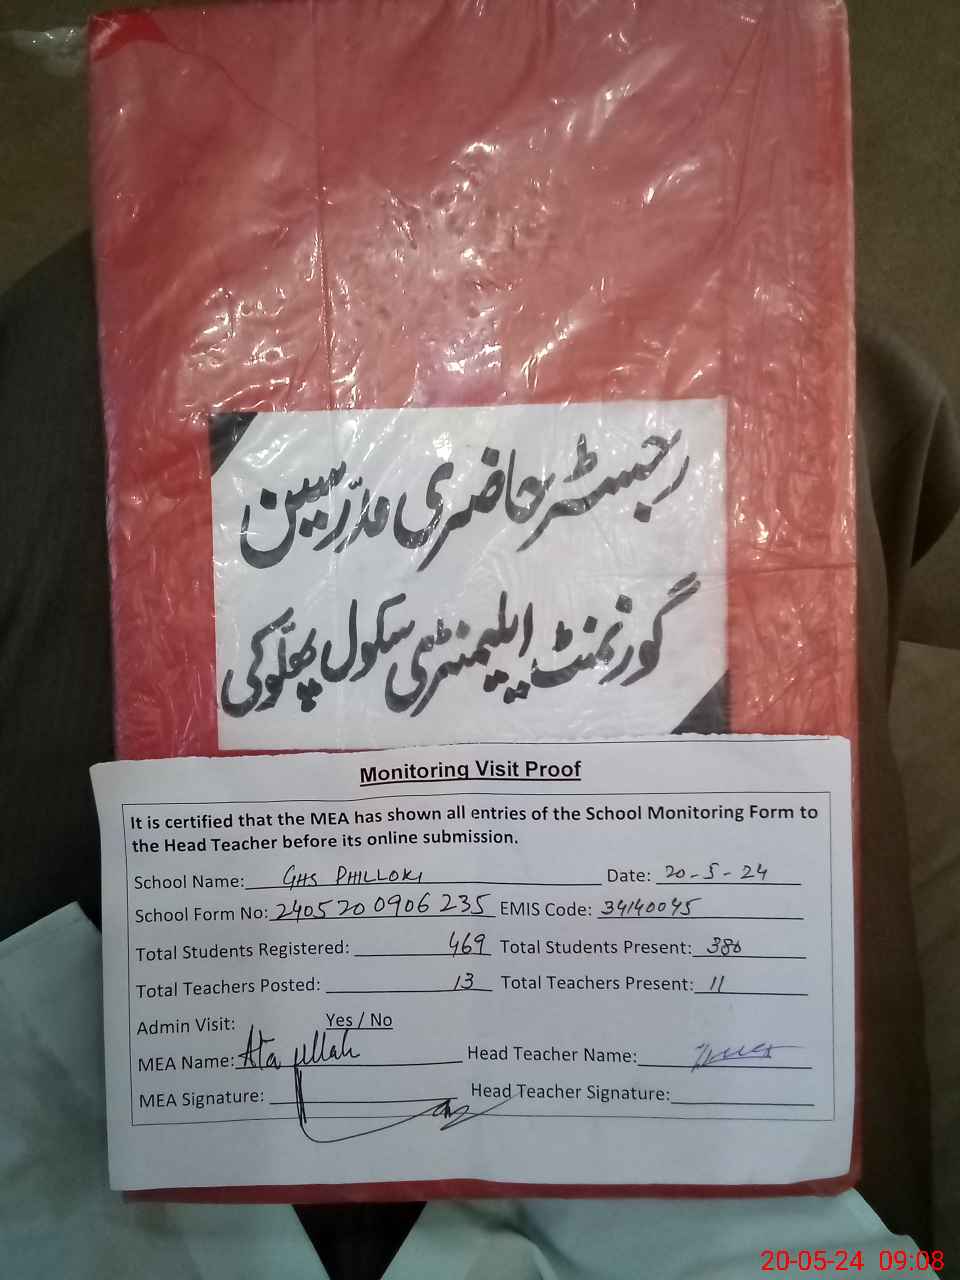 رجسٹر حاضری مدرسین
گورنمنٹ ایلیمنٹری سکول پھلوکی
Monitoring Visit Proof
It is certified that the MEA has shown all entries of the School Monitoring Form to
the Head Teacher before its online submission.
School Name: GHS PHILLOKI Date: 20-5-24
School Form No: 2405200906235 EMIS Code: 34140045
Total Students Registered: 469 Total Students Present: 386
Total Teachers Posted: 13 Total Teachers Present: 11
Admin Visit: Yes / No
MEA Name: Ata ullah Head Teacher Name:
MEA Signature: Head Teacher Signature:
20-05-24 09:08